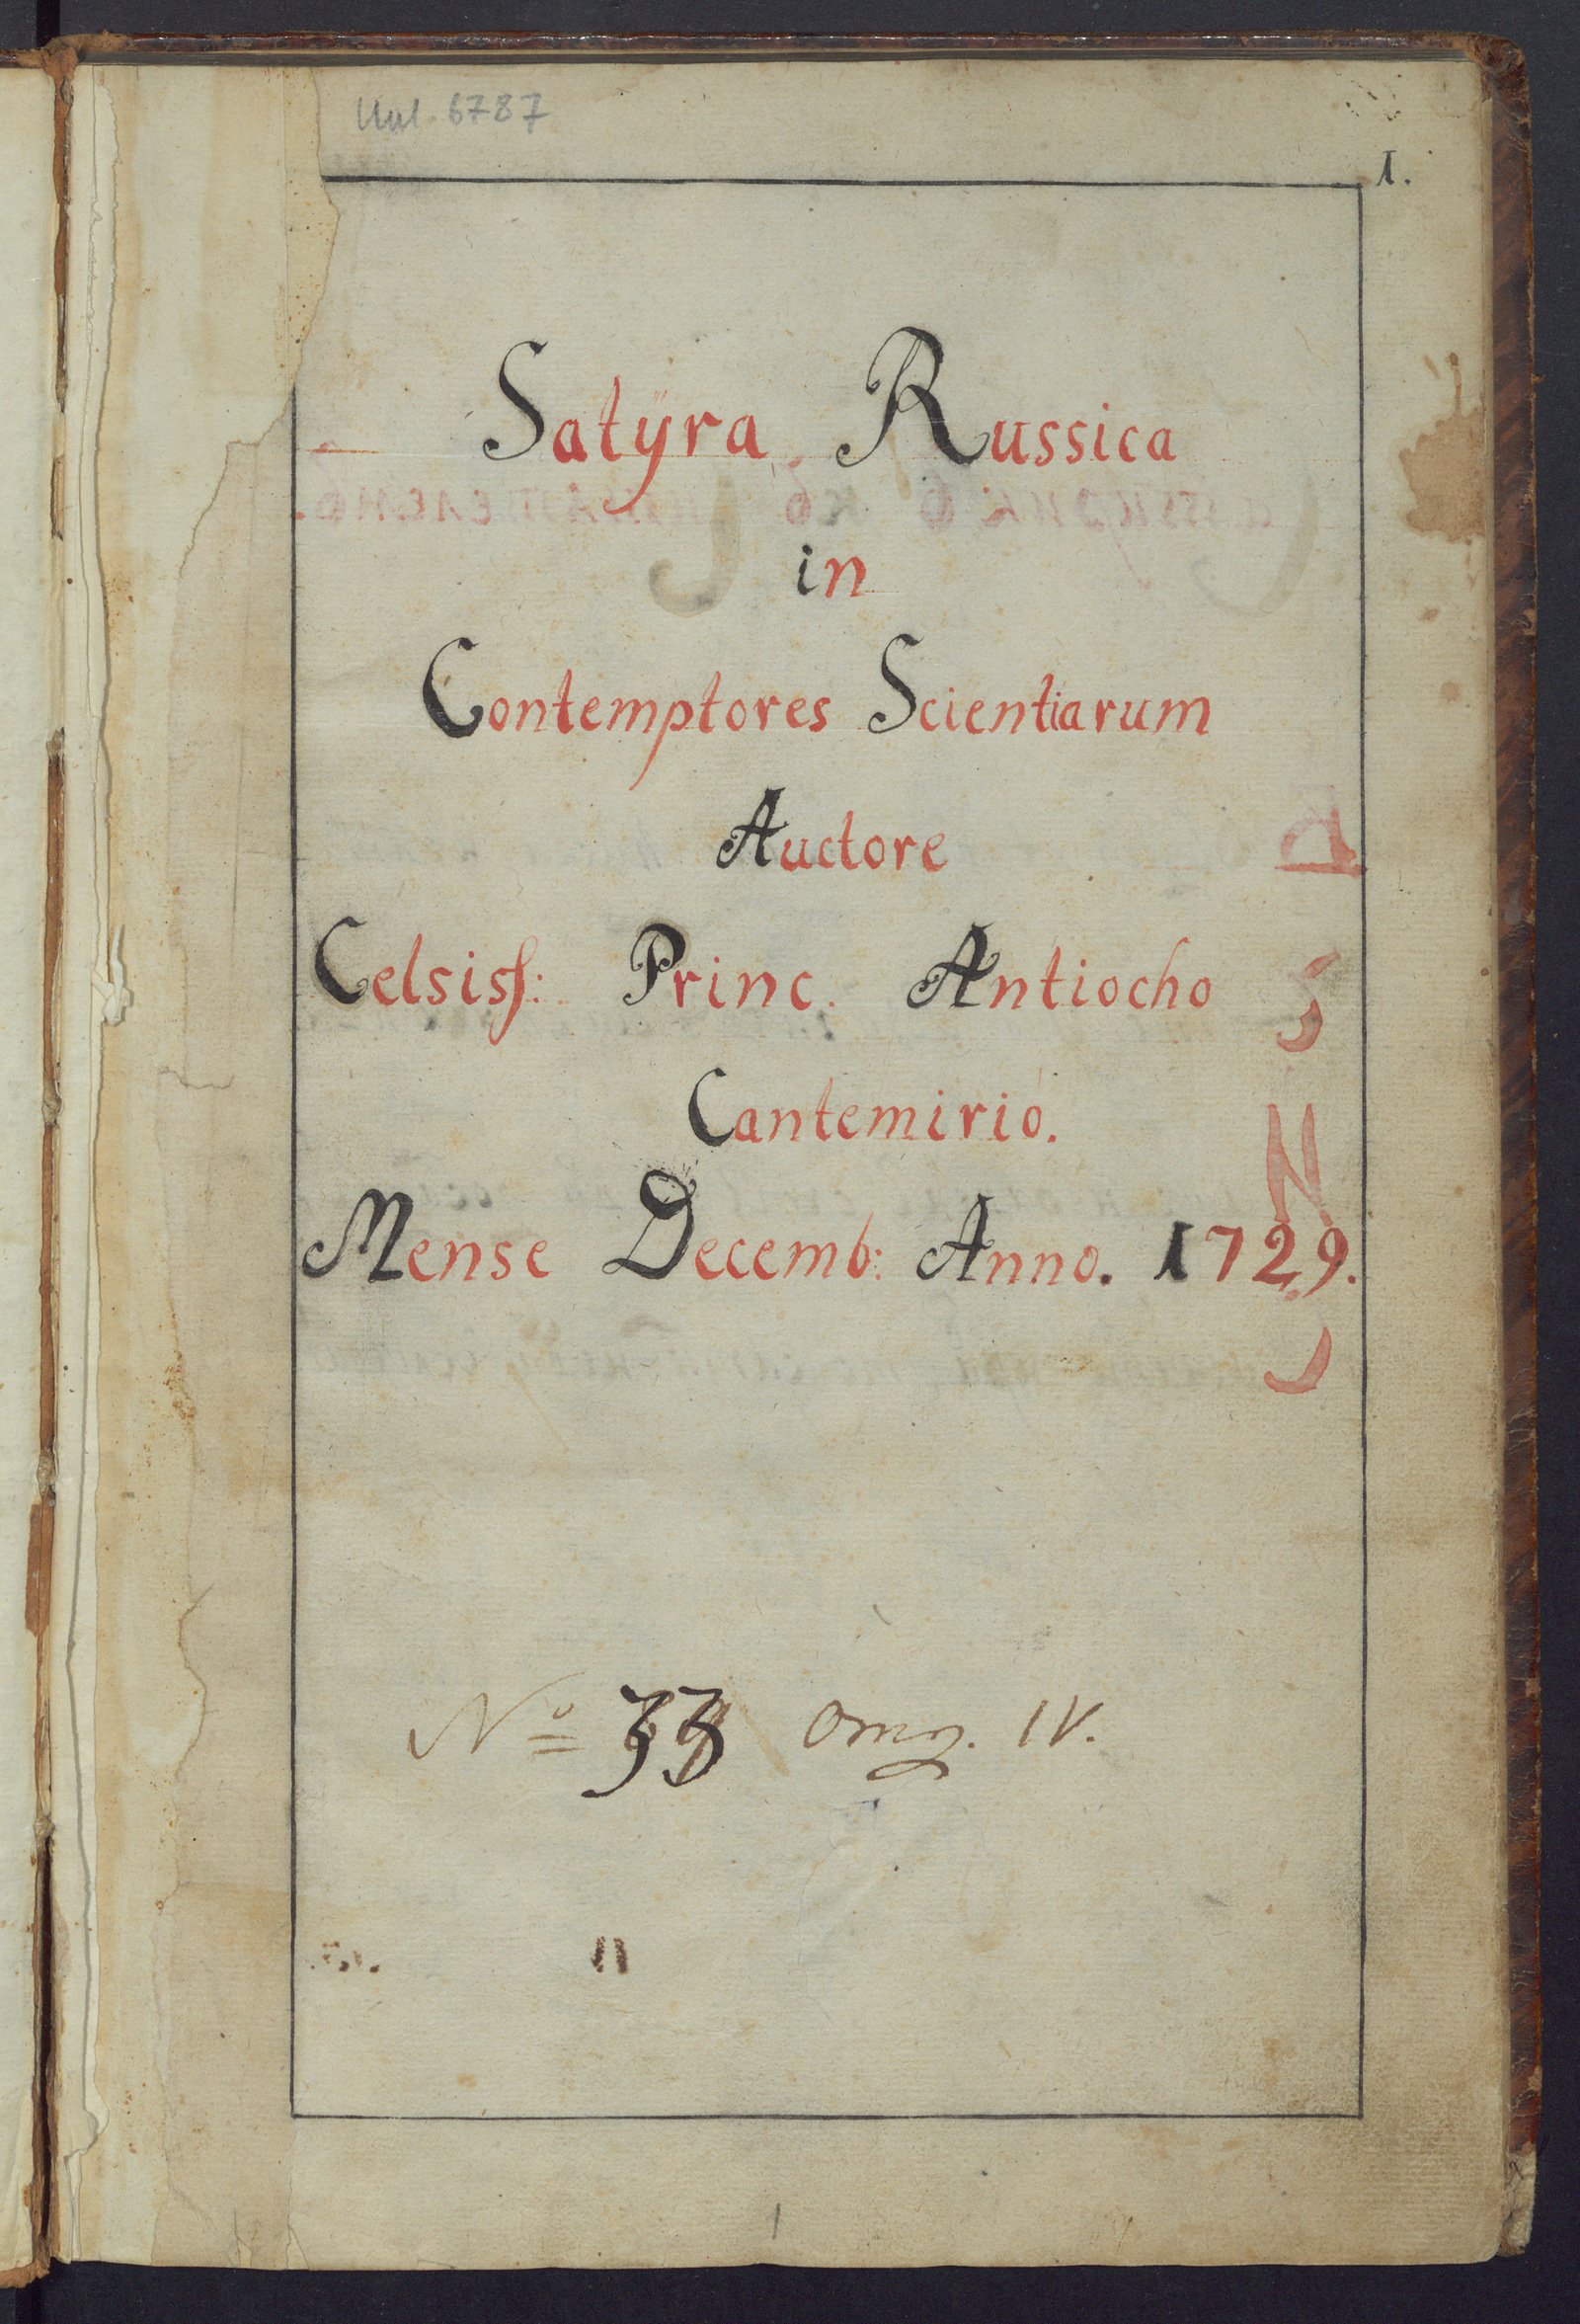 Inl. 6787
1.
Satÿra Russica
in
Contemptores Scientiarum
Auctore
Celsiss: Princ. Antiocho
Cantemirió.
Mense Decemb: Anno. 1729.
№ 33 Отд. IV.
1